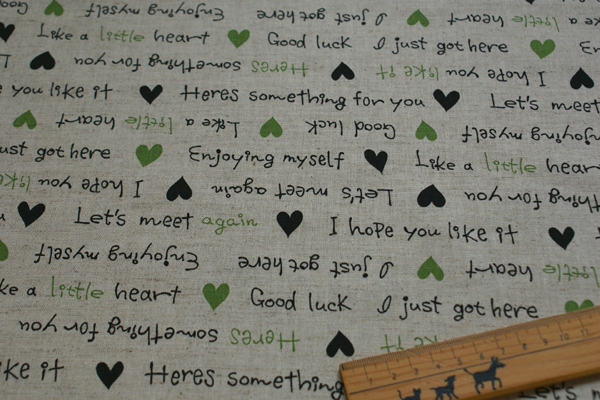 good Enjoying myself I just got here heart little Like a
Like a little heart Good luck I just got here
Heres something for you I hope you like it
you like it Heres something for you Let's meet
Like a little heart Good luck Enjoying myself
just got here Enjoying myself Like a little heart
I hope you like Let's meet again something for you
Let's meet again I hope you like it
Enjoying myself I just got here heart little
Like a little heart Good luck I just got here
Heres something for you it
like it Heres something Let's
1 2 3 4 5 6 7 8 9 10 11 12